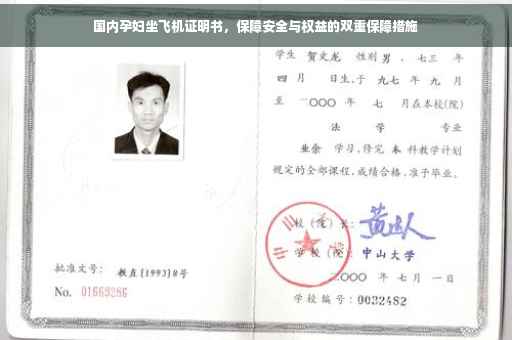 国内孕妇坐飞机证明书，保障安全与权益的双重保障措施
学生 贺文龙 性别 男，七三 年
四 月 日生，于 九七 年 九 月
至 二〇〇〇 年 七 月在本校(院)
法 学 专业
业余 学习，修完 本 科教学计划
规定的全部课程，成绩合格，准予毕业。
校(院)长：
学校(院) 中山大学
批准文号： 教直(1993)8号
二〇〇〇 年 七 月 一 日
No. 01669286
学校编号：0032482